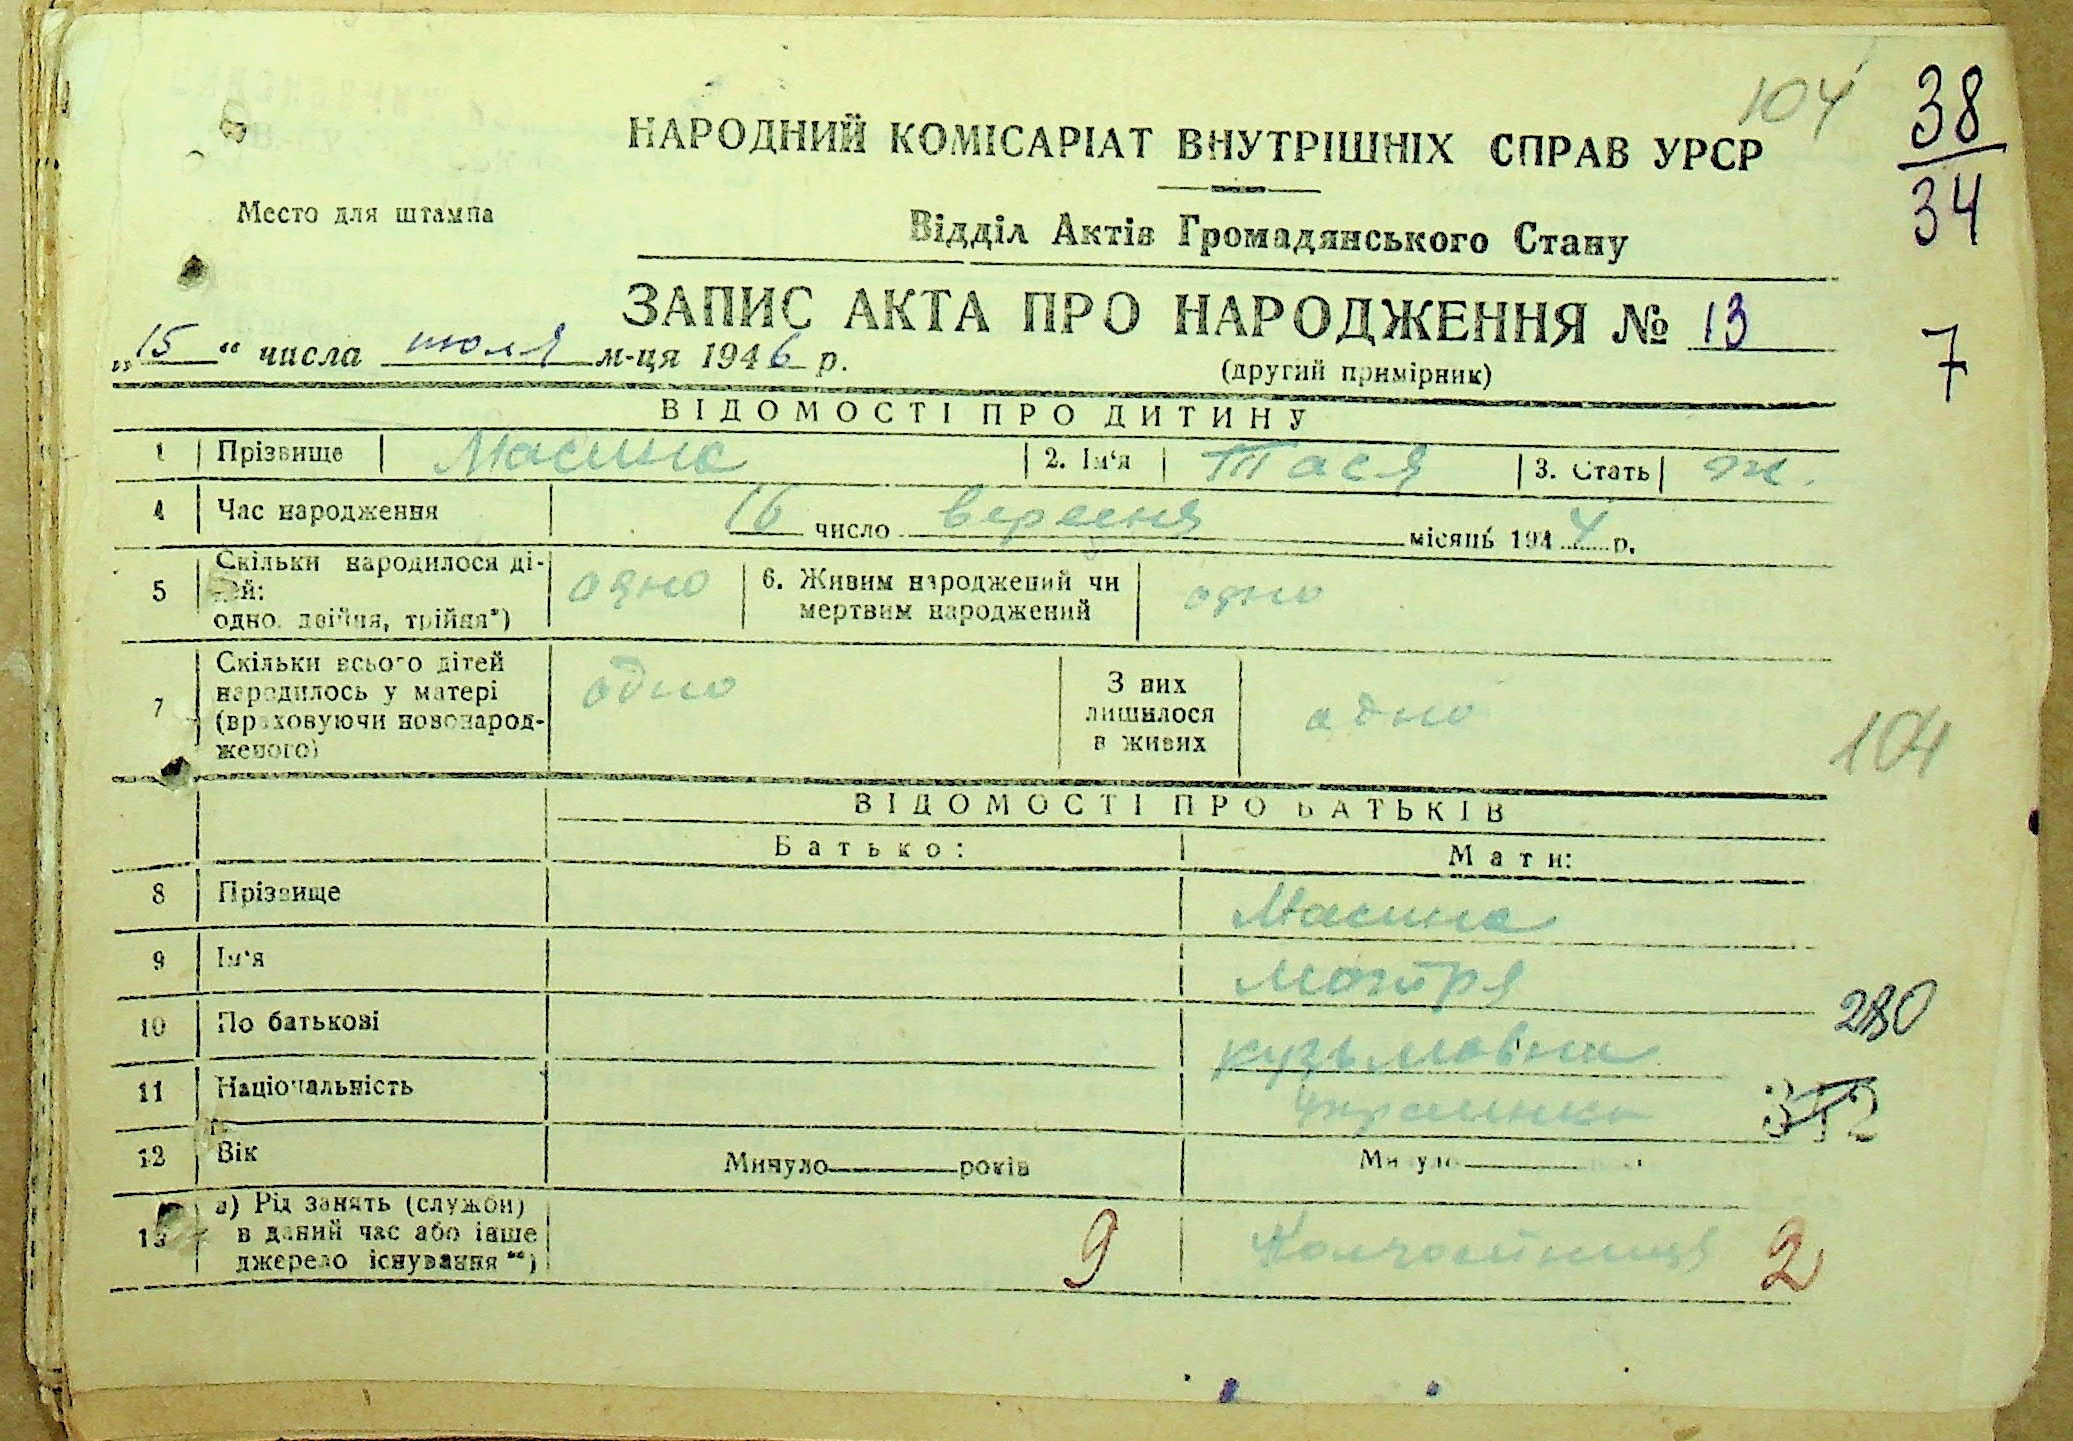 104
38
34
НАРОДНИЙ КОМІСАРІАТ ВНУТРІШНІХ СПРАВ УРСР
Место для штампа
Відділ Актів Громадянського Стану
ЗАПИС АКТА ПРО НАРОДЖЕННЯ № 13
7
„15“ числа июля м-ця 1946 р.
(другий примірник)
ВІДОМОСТІ ПРО ДИТИНУ
1 Прізвище Масина 2. Ім'я Тася 3. Стать ж.
4 Час народження 16 число вересня місяць 1944 р.
5 Скільки народилося дітей: одно 6. Живим народжений чи одно
одно, двійня, трійня*) мертвим народжений
7 Скільки всього дітей
народилось у матері одно З них
(враховуючи новонарод- лишилося одно
женого) в живих
104
ВІДОМОСТІ ПРО БАТЬКІВ
Батько: Мати:
8 Прізвище Масина
9 Ім'я Мотря
10 По батькові кузьмовна
280
11 Національність українка
312
12 Вік Минуло років Минуло
13 а) Рід занять (служби)
в даний час або інше 9 Колгоспниця 2
джерело існування**)